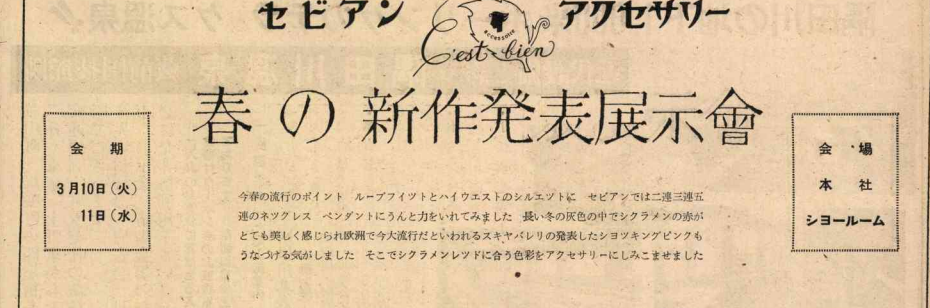 セビアン アクセサリー
accessoire
C'est-bien
春の新作発表展示會
会期
3月10日(火)
11日(水)
今春の流行のポイント ルーズフイツトとハイウエストのシルエツトに セビアンでは二連三連五
連のネツクレス ペンダントにうんと力をいれてみました 長い冬の灰色の中でシクラメンの赤が
とても美しく感じられ欧洲で今大流行だといわれるスキヤパレリの発表したシヨツキングピンクも
うなづける気がしました そこでシクラメンレツドに合う色彩をアクセサリーにしみこませました
会場
本社
シヨールーム